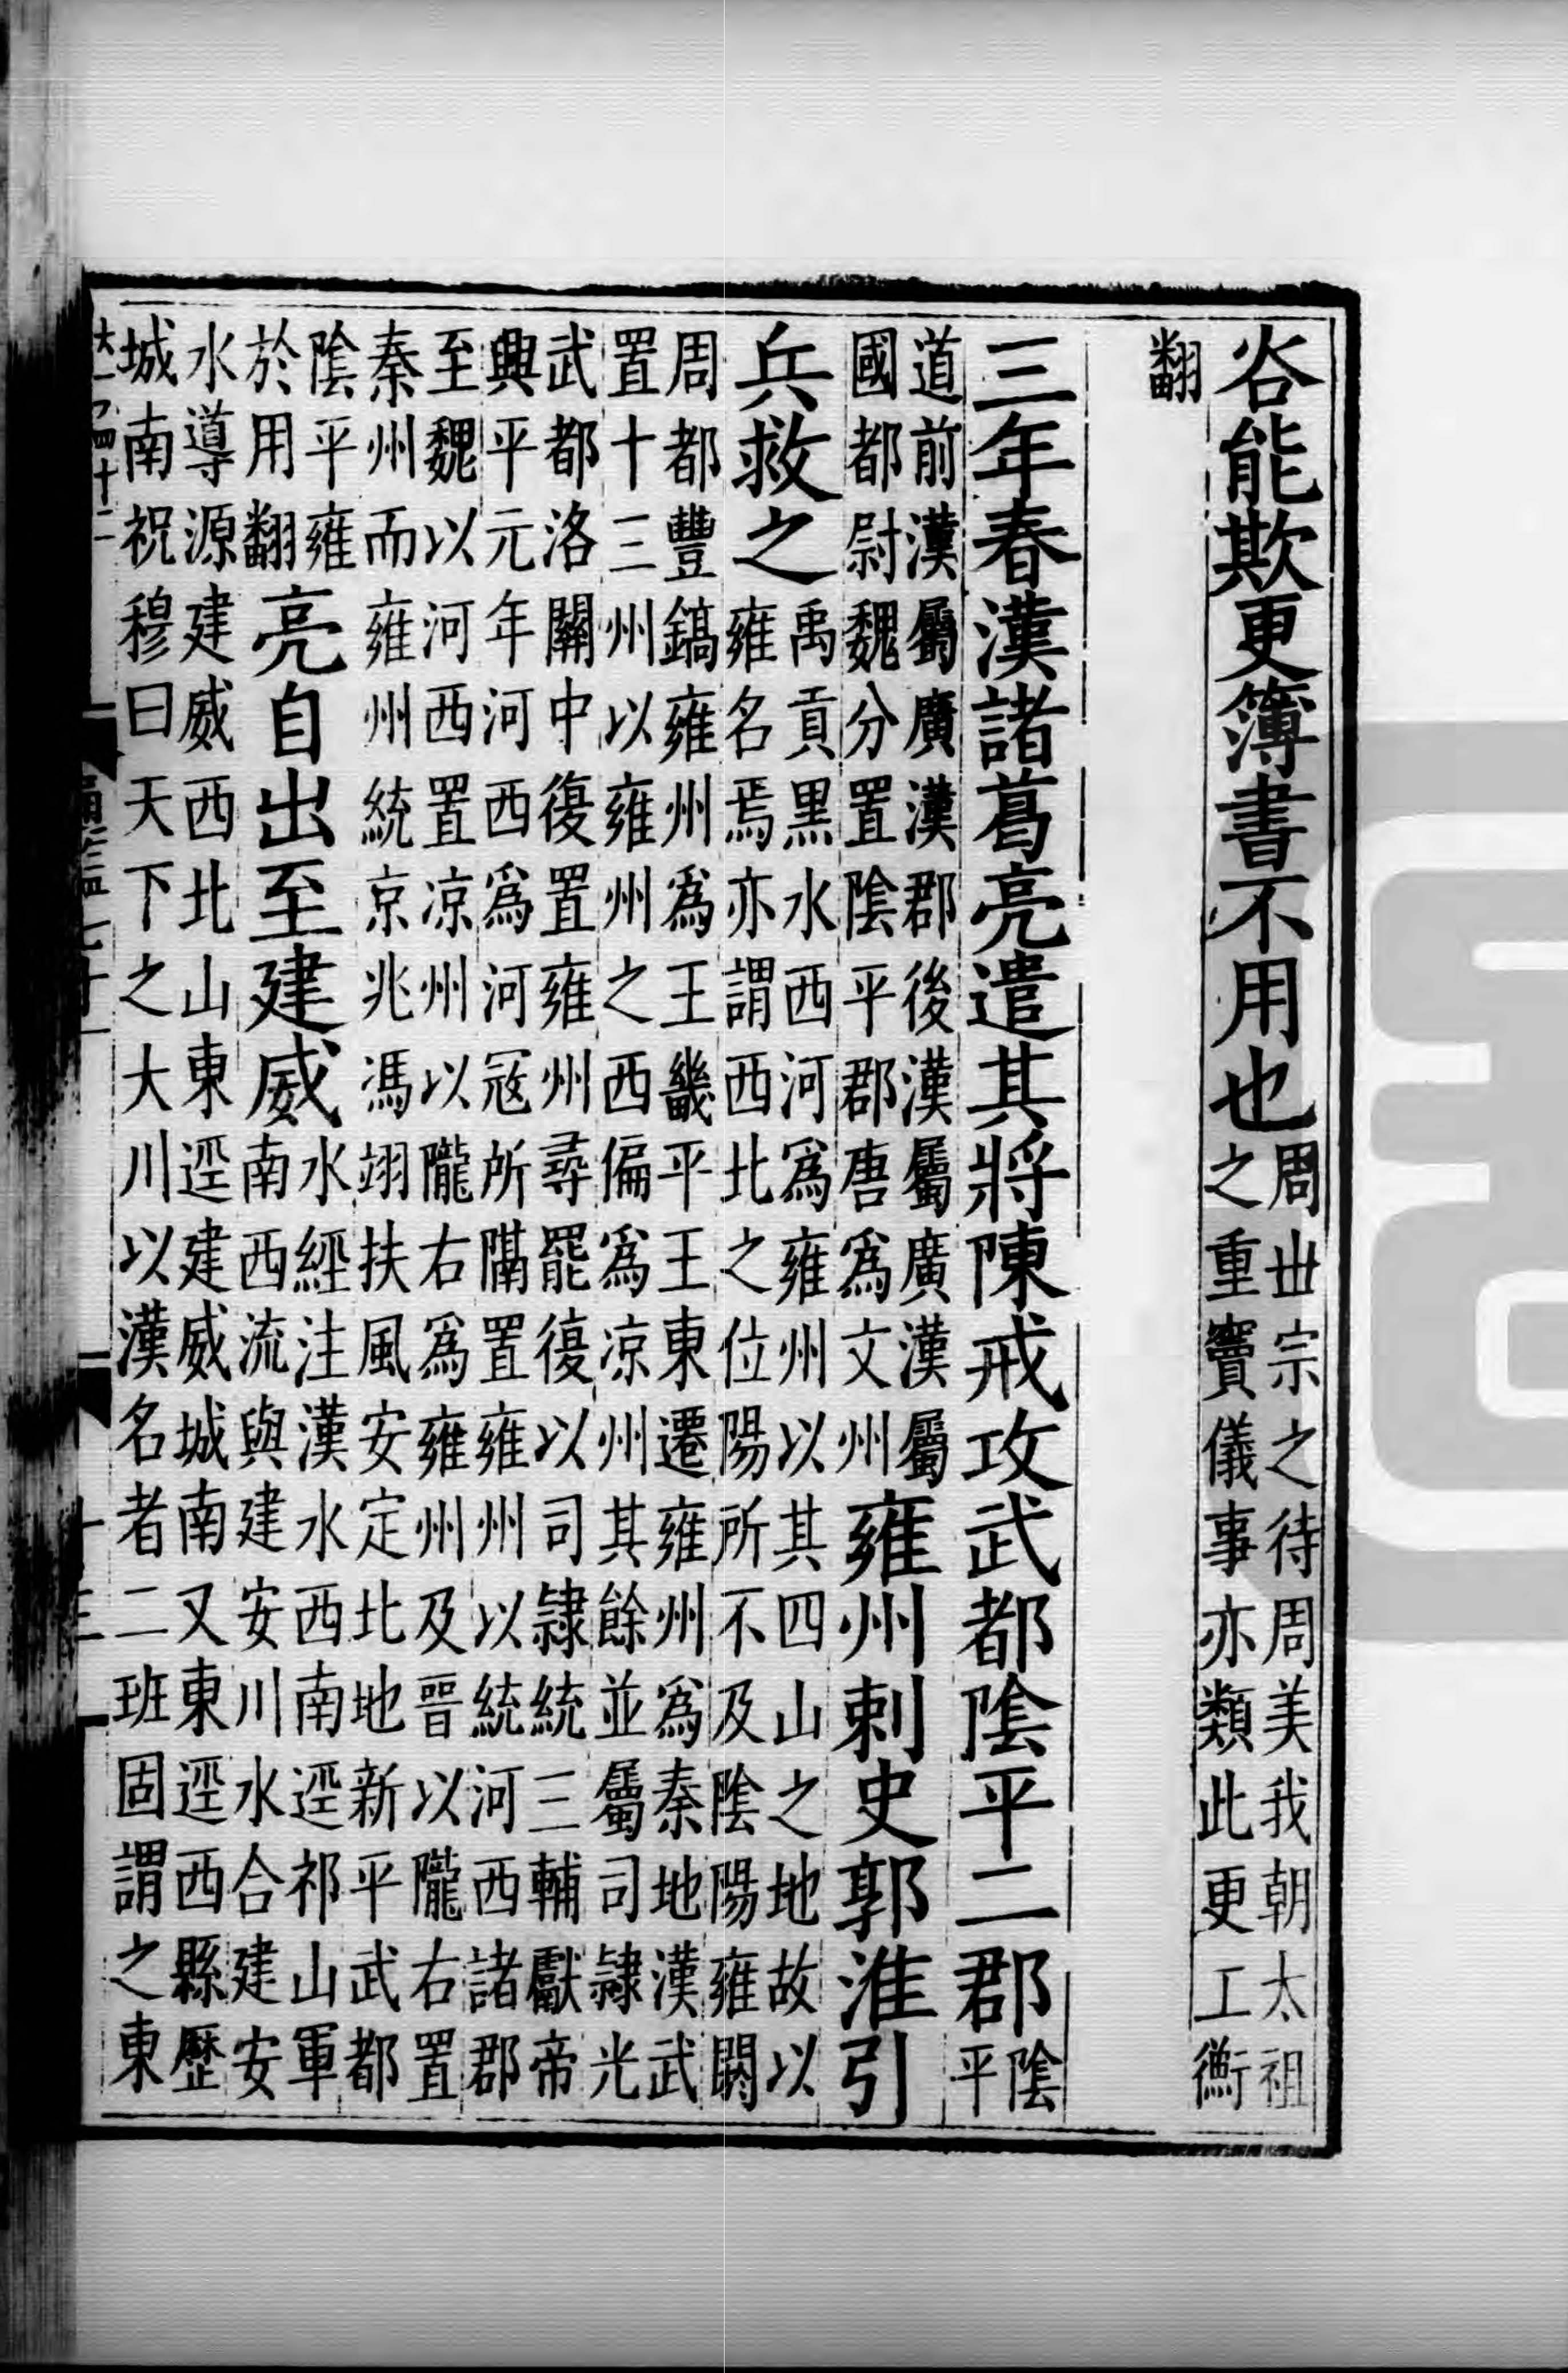 能欺更簿書不用也
周世宗之待周美我朝太祖
之重竇儀事亦類此更工衡
翻
三年春漢諸葛亮遣其將陳戒攻武都陰平二郡
陰
平
道前漢屬廣漢郡後漢屬廣漢屬
國都尉魏分置陰平郡唐爲文州
雍州刺史郭淮引
兵救之
禹貢黑水西河爲雍州以其四山之地故以
雍名焉亦謂西北之位陽所不及陰陽雍閼
周都豐鎬雍州爲王畿平王東遷雍州爲秦地漢武
置十三州以雍州之西偏爲凉州其餘並屬司隷光
武都洛關中復置雍州尋罷復以司隷統三輔獻帝
興平元年河西爲河寇所隔置雍州以統河西諸郡
至魏以河西置凉州以隴右爲雍州及晉以隴右置
秦州而雍州統京兆馮翊扶風安定北地新平武都
陰平雍
於用翻
亮自出至建威
水經注漢水西南逕祁山軍
南西流與建安川水合建安
水導源建威西北山東逕建威城南又東逕西縣歷
城南祝穆曰天下之大川以漢名者二班固謂之東